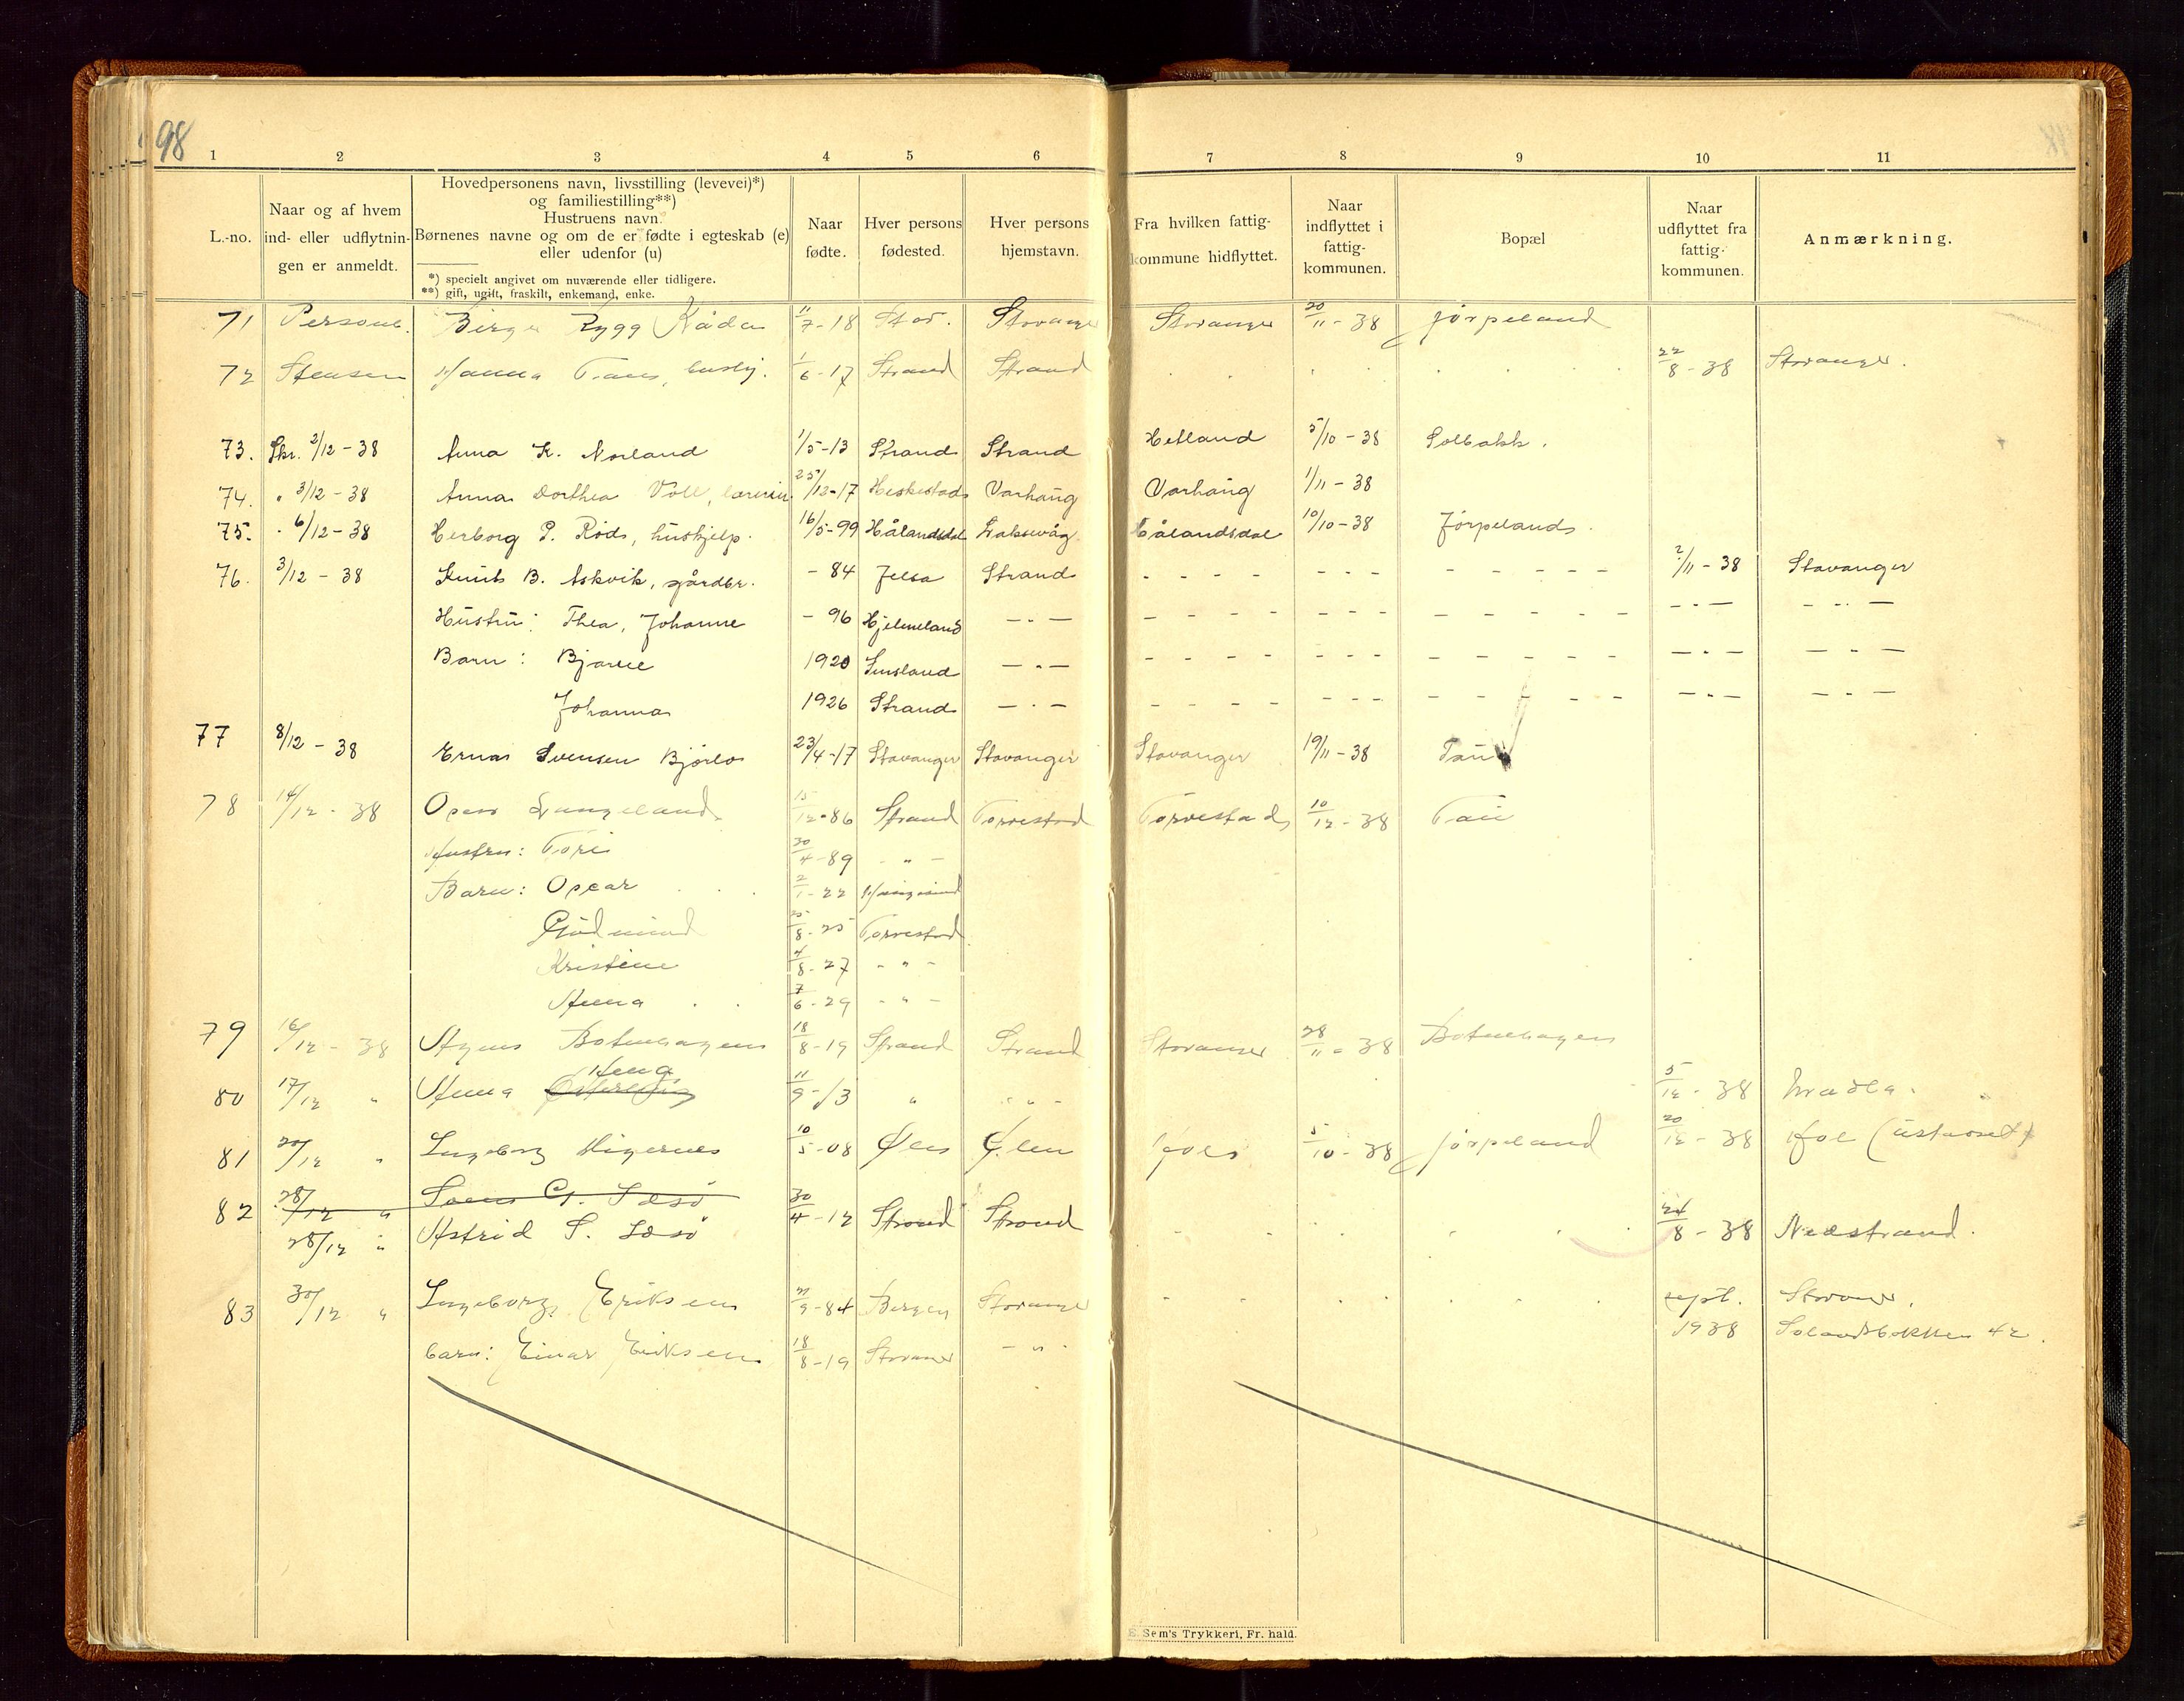 98
1 2 3 4 5 6 7 8 9 10 11
L.-no.
Naar og af hvem ind- eller udflytnin- gen er anmeldt.
Hovedpersonens navn, livsstilling (levevei)*)
og familiestilling**)
Hustruens navn.
Børnenes navne og om de er fødte i egteskab (e)
eller udenfor (u)
*) specielt angivet om nuværende eller tidligere.
**) gift, ugift, fraskilt, enkemand, enke.
Naar fødte.
Hver persons fødested.
Hver persons hjemstavn.
Fra hvilken fattig- kommune hidflyttet.
Naar indflyttet i fattig- kommunen.
Bopæl
Naar udflyttet fra fattig- kommunen.
Anmærkning.
71 Birger Rygg Kåda 11/7-18 Stav. Stavanger Stavanger 20/11-38 Jørpeland
72 Stensen Hanna 1/6-17 Strand Strand 22/8-38 Stavanger.
73. Skr. 2/12-38 Anna K. Norland 1/5-13 Strand Strand Hetland 5/10-38 Solbakk.
74. " 3/12-38 Anna Dorthea Voll, 25/12-17 Heskestad Varhaug Varhaug 1/11-38
75. " 6/12-38 Herborg P. Røds, hushjelp. 16/5-99 Hålandsdal Laksevåg Hålandsdal 10/10-38 Jørpeland.
76. 3/12-38 Knut B. Askvik, gårdbr. -84 Jelsa Strand - - - - - - - - - - - - - 2/11-38 Stavanger
Hustru: Thea, Johanne -96 Hjelmeland - " - - - - - - - - - - - - - - - - " - - " -
Barn: Bjarne 1920 - " - - - - - - - - - - - - - - - - " - - " -
Johanna 1926 Strand - " - - - - - - - - - - - - - - - - " - - " -
77 8/12-38 Erna Svensen Bjørlo 23/4-17 Stavanger Stavanger Stavanger 19/11-38 Tau
78 14/12-38 Langeland 15/12-86 Strand Torvestad Torvestad 10/12-38 Tau
Hustru: Tori 30/4-89 - " -
Barn: Oscar 2/1-22 Haugesund
Gudmund 25/8-25 Torvestad
Kristine 4/8-27 - " -
Anna 7/6-29 - " -
79 16/12-38 Agnes Botnehagen 18/8-19 Strand Strand Stavanger 28/11-38 Botnehagen
80 17/12 " Anna 11/9-13 " " 5/12-38
81 20/12 " Ingeborg 10/5-08 Ølen Ølen 5/10-38 Jørpeland 20/12-38
82 28/12 "
28/12 " Astrid S. Læsø 30/4-12 Strand Strand 24/8-38 Nedstrand.
83 30/12 " Ingeborg Eriksen 21/9-84 Bergen Stavanger sept. 1938 Stavanger.
barn: Einar Eriksen 18/8-19 Stavanger - " -
E. Sem's Trykkeri, Fr. hald.